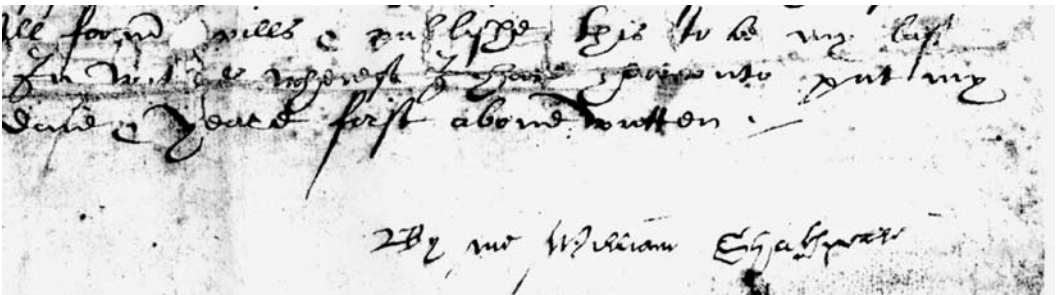 All form wills & publishe this to be my last
In witnes whereof I have hereunto put my
daie & Yeare first aboue written .
By me William Shakspeare